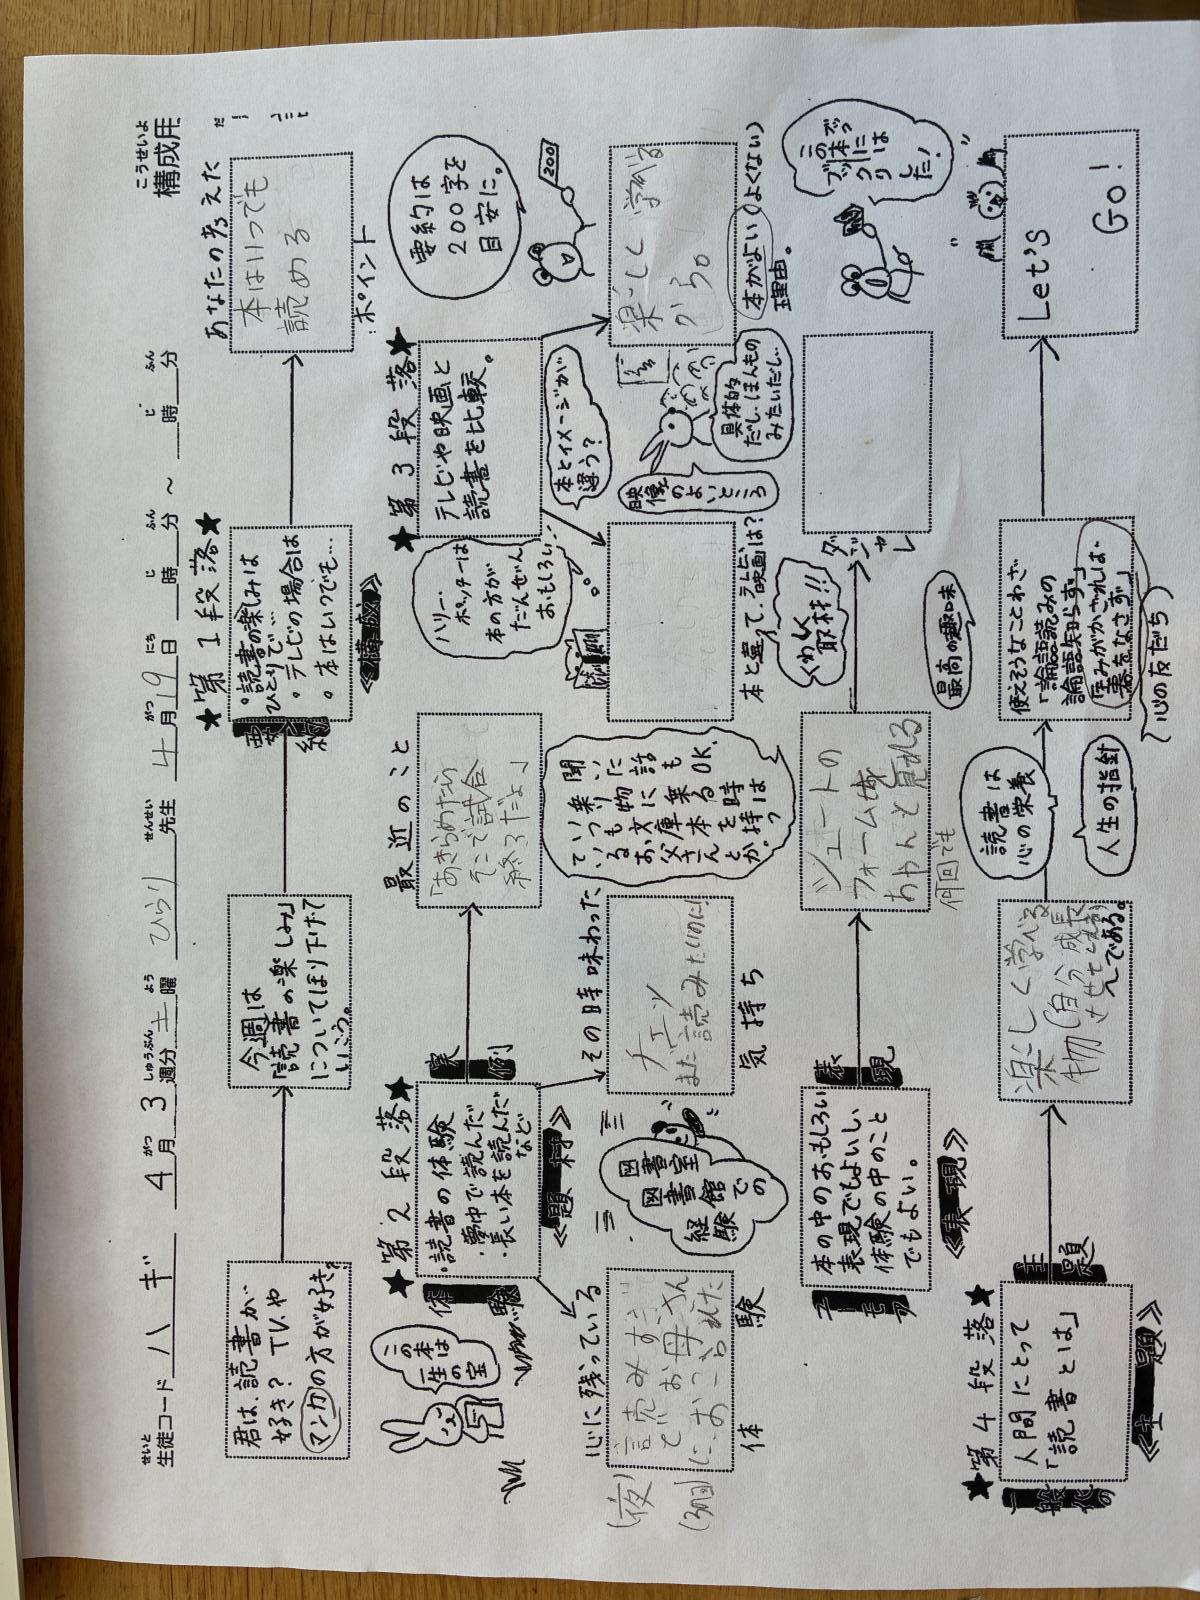 こうせいよ
構成用
生徒コード ハギ 4月3週分 土曜 ひらり 先生 4月19日 時 分 ～ 時 分
せいと
がつ
しゅうぶん
よう
せんせい
がつ
にち
じ
ふん
じ
ふん
★第1段落★
君は、読書が
好き？TVや
マンガの方が好き？
今週は
「読書の楽しみ」
についてほり下げて
いこう。
要約
・読書の楽しみは
ひとりで…
・テレビの場合は
・本はいつでも…
《構成》
あなたの考えた
本はいつでも
読める
ポイント
★第2段落★
体験
・読書の体験
・夢中で読んだ
・長い本を読んだ
など
《題材》
実例
最近のこと
「あきらめたら
そこで試合
終了だよ」
この本は
一生の宝
心に残っている
(夜)
読みすぎ
てお母さん
におこられた
(3回目)
体験
図書室
図書館
での
経験
その時味わった
チェッ
また読みたいのに!
気持ち
聞いた話もOK。
乗り物に乗る時
いつも文庫本を持つ
ているお父さんとか。
★第3段落★
テレビや映画と
読書を比較。
要約は
200字を
目安に。
200
ハリー・
ポッターは
本の方が
だんぜん
おもしろい…
本とイメージが
違う？
映像
のよいところ
具体的
だし、ほんもの
みたいだし…
本と違って、テレビ、映画は？
楽しく学べる
から。
本がよい(よくない)
理由。
ユーモア
本の中のおもしろい
表現でもよいし
体験の中のこと
でもよい。
《表現》
表現
シュートの
フォームを
ちゃんと見れる
何回でも
くわしく
取材!!
ダジャレ
この本
にはブックリ
した！
★第4段落★
一般化の
人間にとって
「読書とは」
《主題》
主題
楽しく学べる
物(自分を成長
させる)
んである。
読書は
心の栄養
人生の指針
最高の趣味
使えそうなことわざ
「論語読みの
論語知らず」
「玉みがかざれば
器をなさず」
心の友だち
Let's
Go!